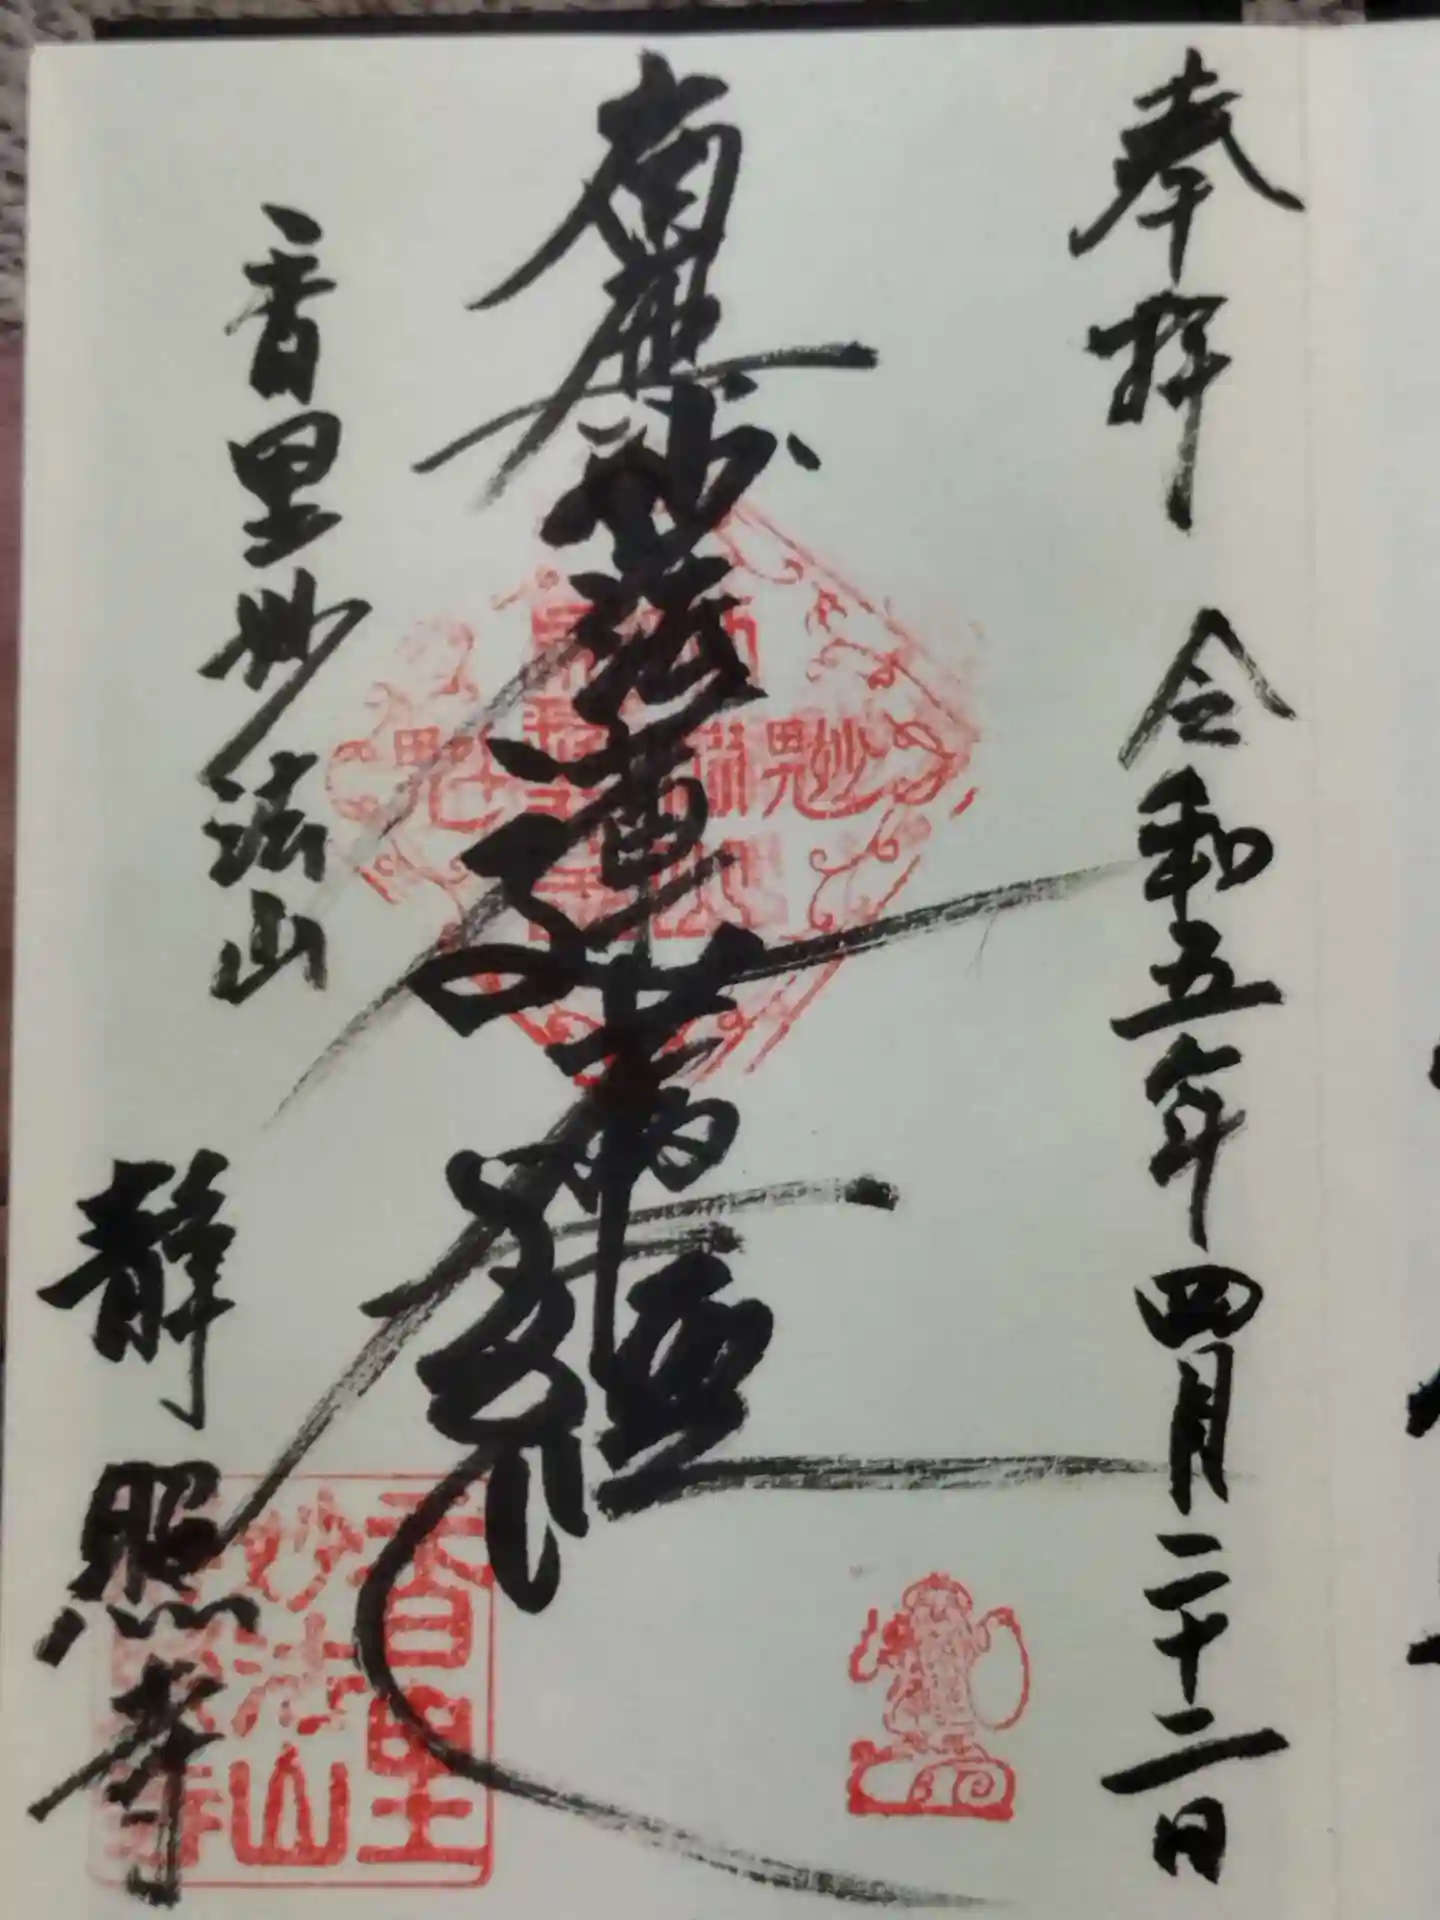 奉拝 令和五年四月二十二日
南無妙法蓮華経
音里妙法山
静照寺
音里
妙法山